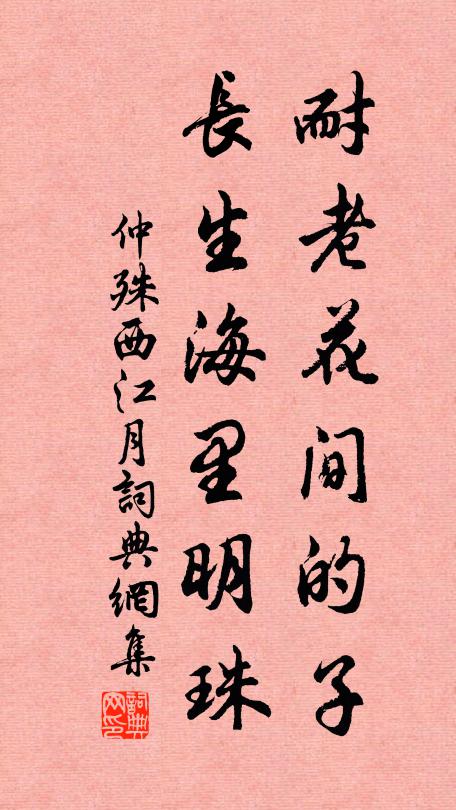 耐老花间的子
長生海里明珠
仲殊西江月詞典網集
詞典网印